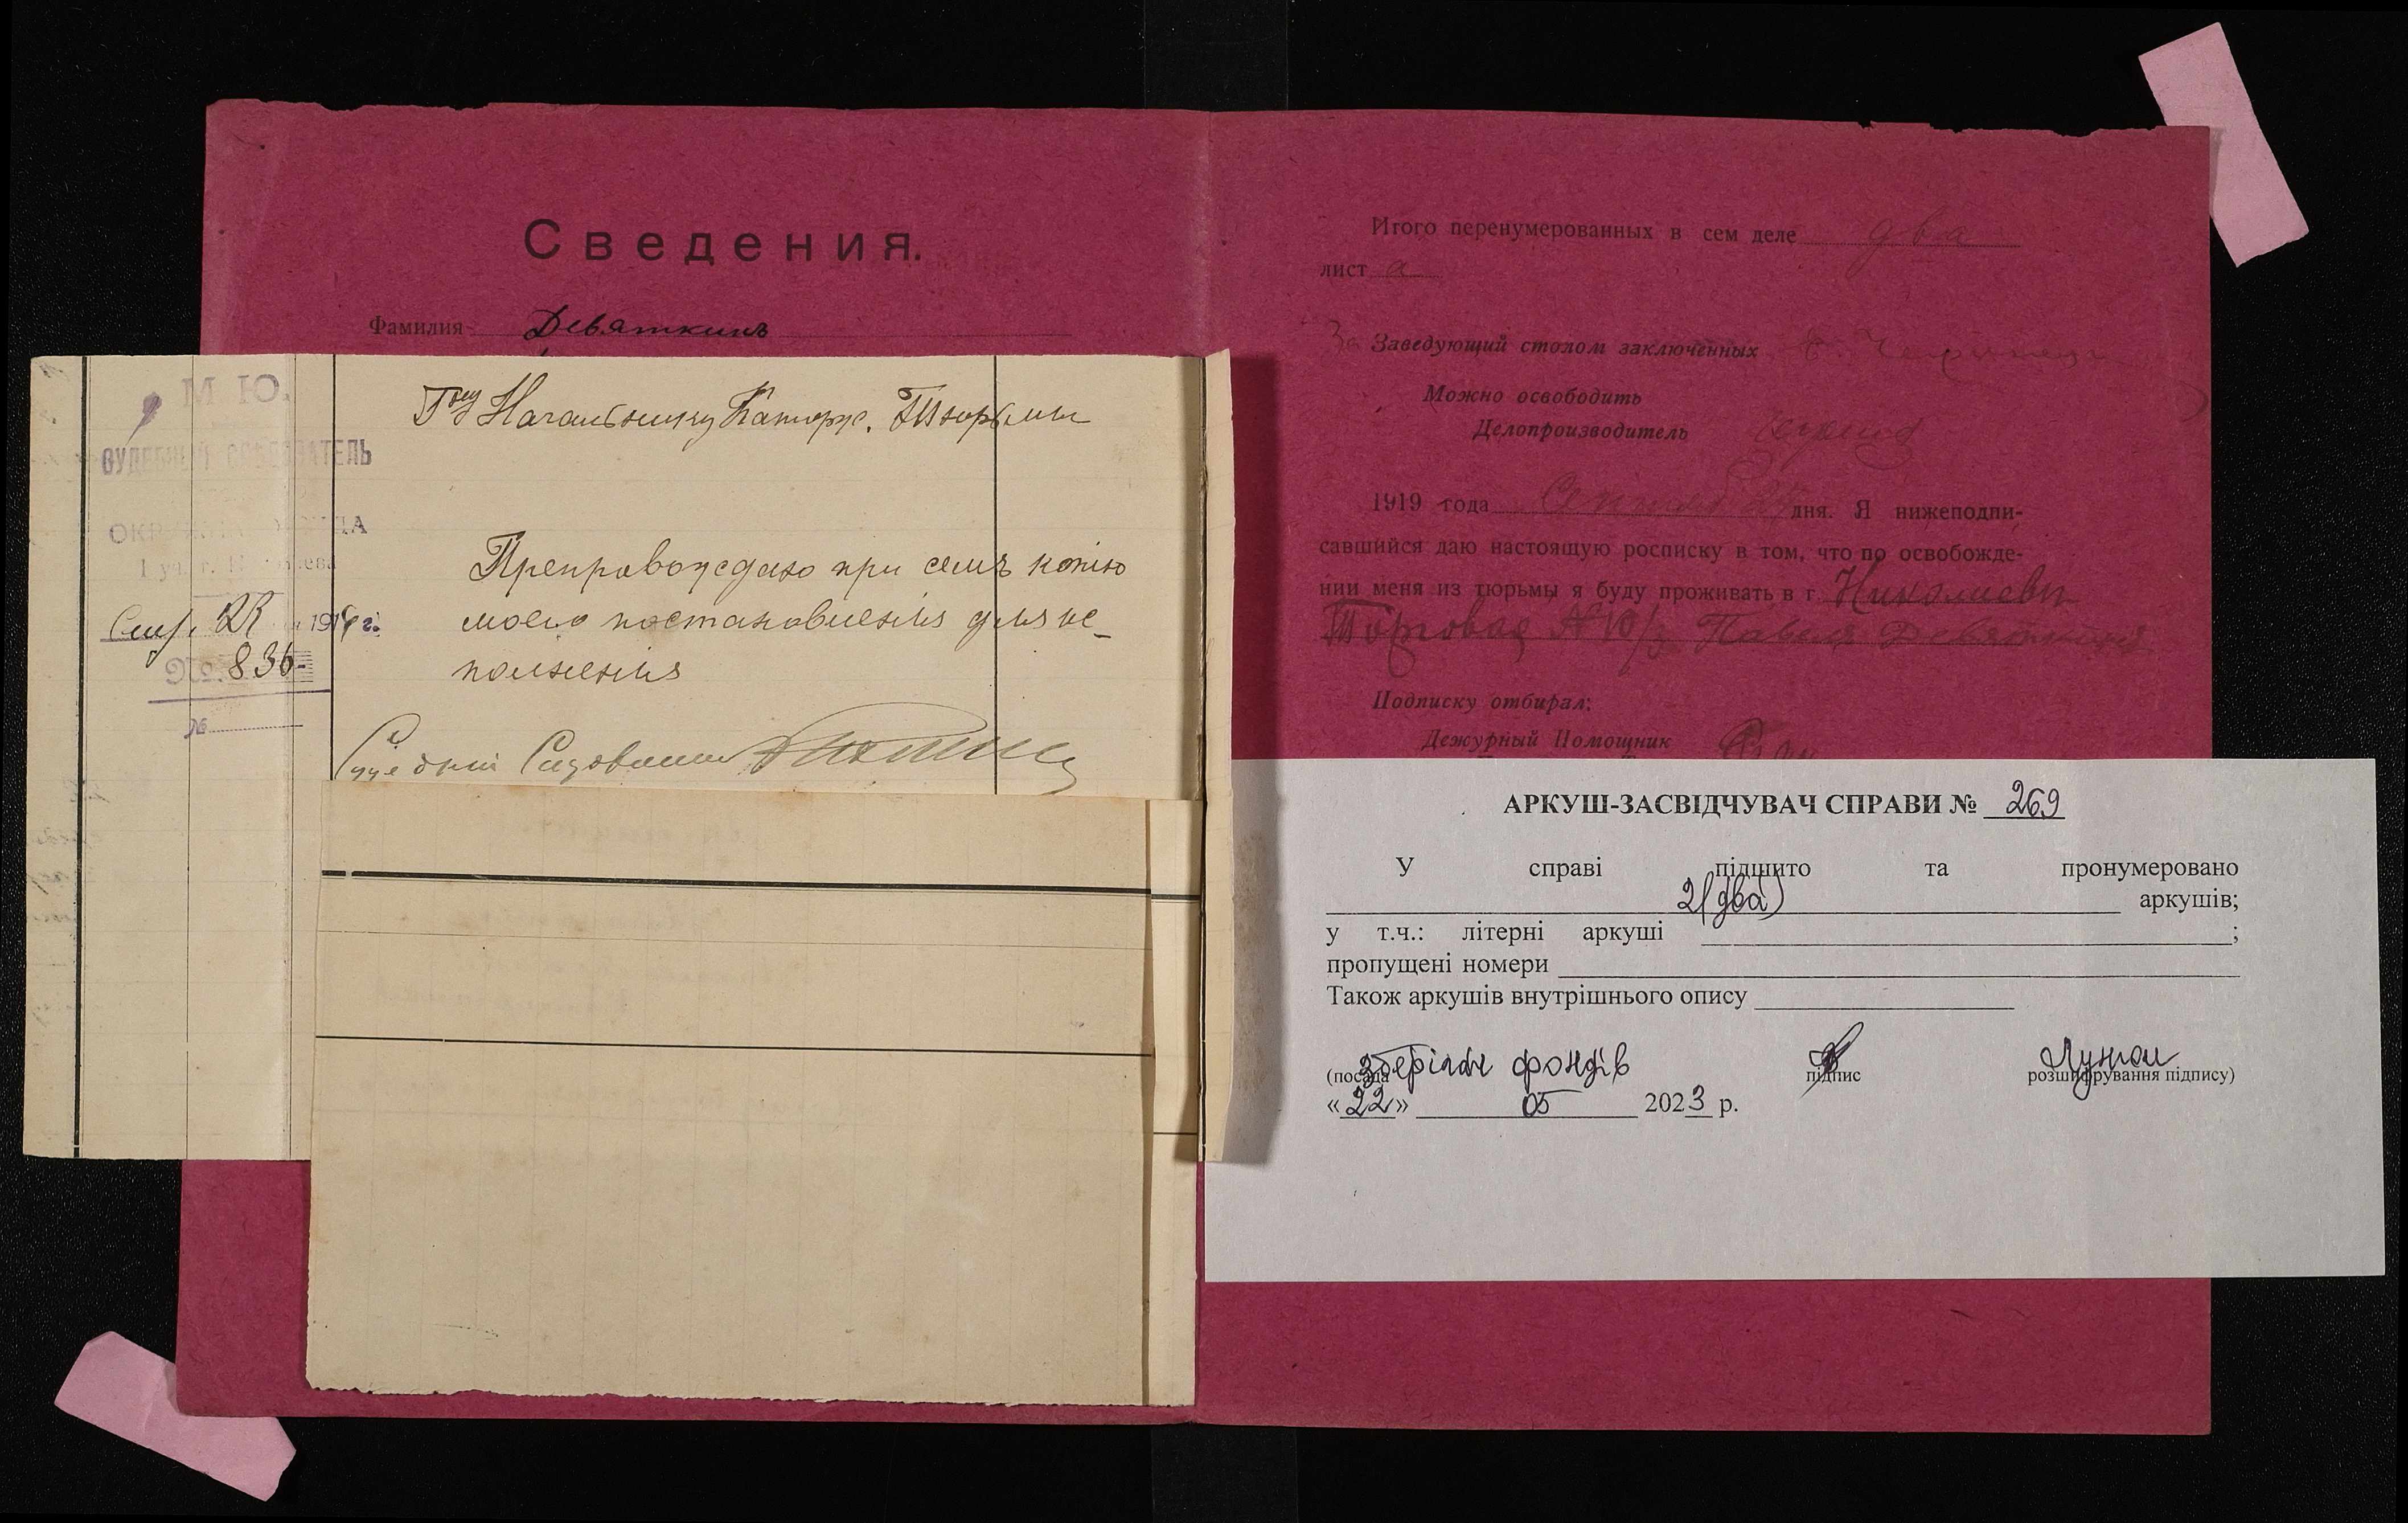 Сведения.
Фамилия Девяткинъ
М. Ю.
СУДЕБНЫЙ СЛЕДОВАТЕЛЬ
ОКРУЖНА СУДА
1 уч. г. Н
Сент. 27 1919 г.
№ 836
№
Гну Начальнику Каторж. Тюрьмы
Препровождаю при семъ копію
моего постановленія для ис-
полненія
Судебный Следователь
Итого перенумерованных в сем деле два
лист а
За Заведующий столом заключенных
Можно освободить
Делопроизводитель
1919 года Сентября 27 дня. Я нижеподпи-
савшийся даю настоящую росписку в том, что по освобожде-
нии меня из тюрьмы я буду проживать в г. Николаеве
Торговая № Павелъ Девяткинъ
Подписку отбирал:
Дежурный Помощник
АРКУШ-ЗАСВІДЧУВАЧ СПРАВИ № 269
У справі підшито та пронумеровано
2 (два) аркушів;
у т.ч.: літерні аркуші ;
пропущені номери
Також аркушів внутрішнього опису
зберігач фондів
(посада підпис розшифрування підпису)
«22» 05 2023 р.